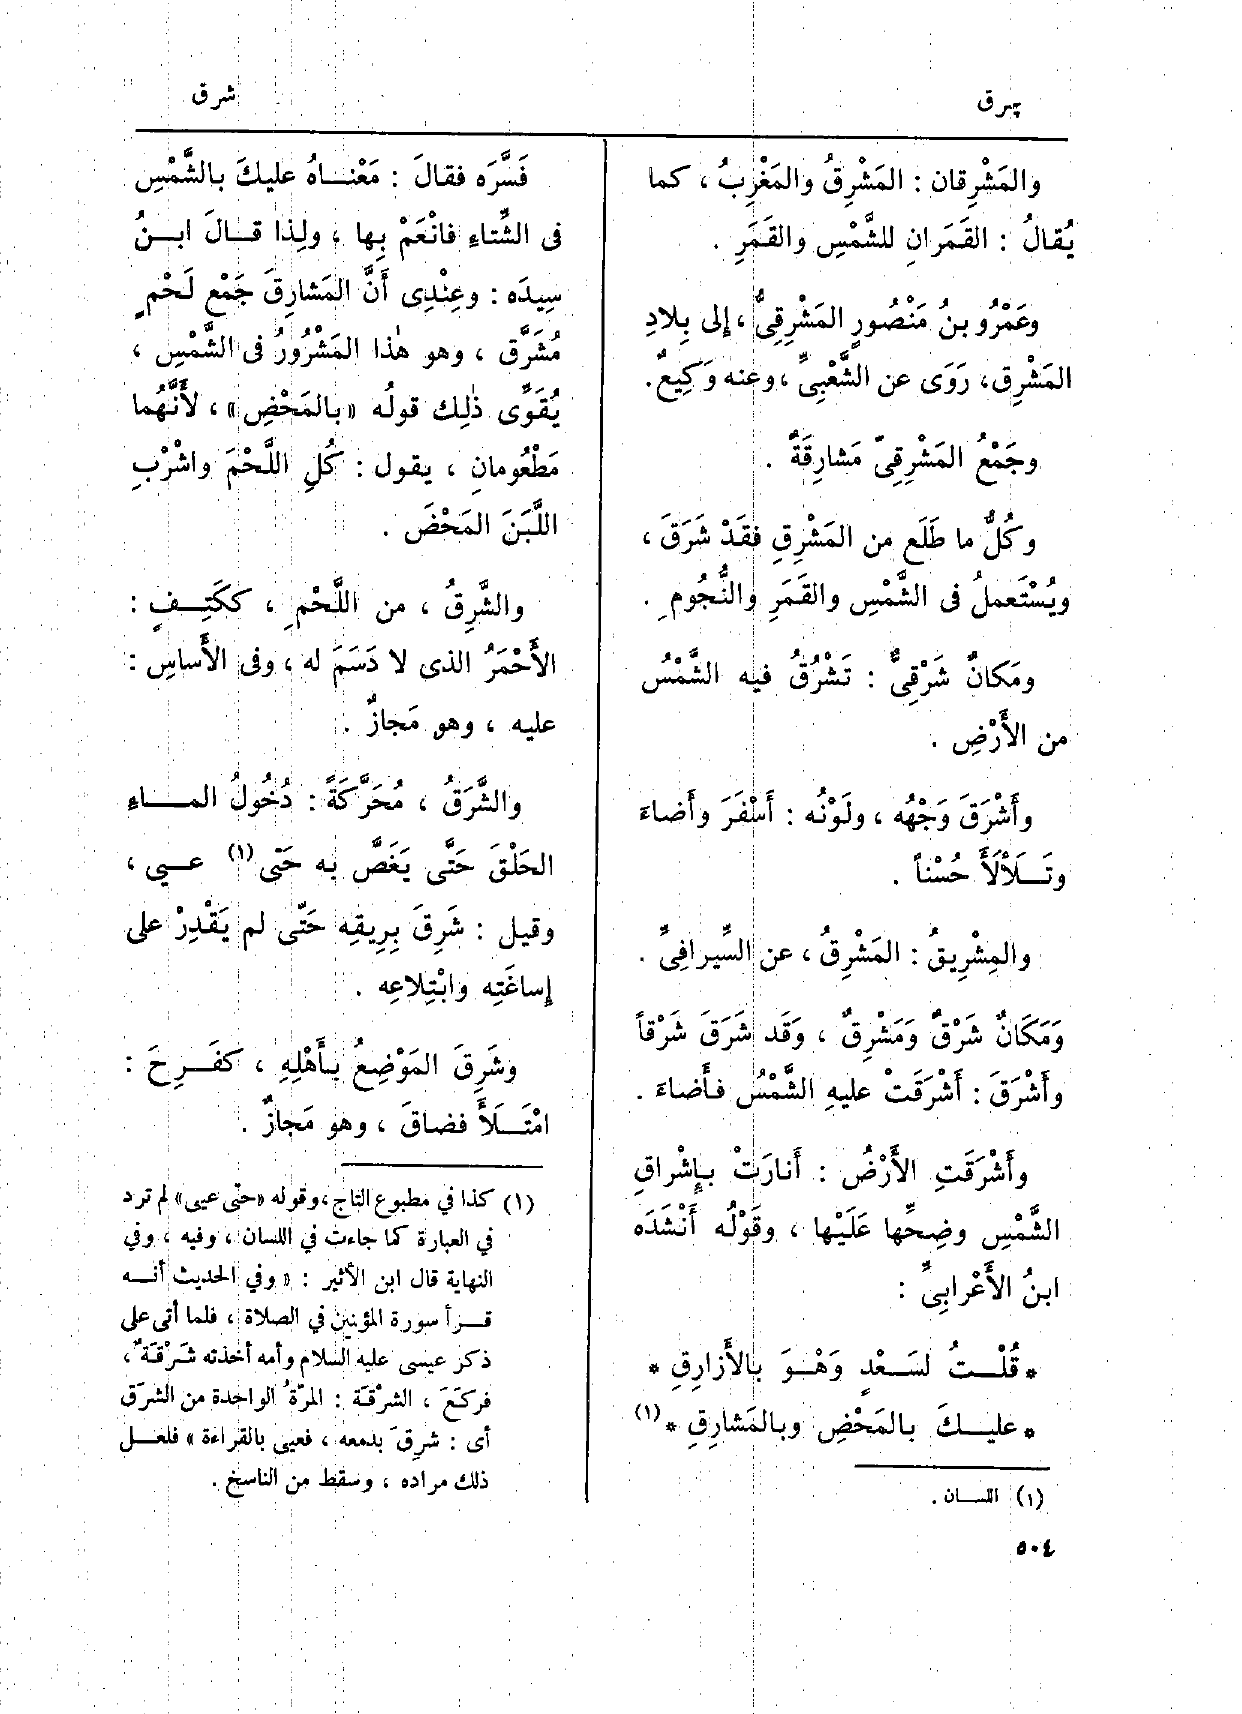 شرق
شرق
والمَشْرِقان : المَشْرِقُ والمَغْرِبُ ، كما
يُقالُ : القَمَرانِ للشَّمْسِ والقَمَرِ .
وعَمْرُو بنُ مَنْصُورٍ المَشْرِقِىُّ ، إلى بِلادِ
المَشْرِق، رَوَى عن الشَّعْبِىِّ ، وعنه وَكِيعٌ.
وجَمْعُ المَشْرِقِىّ مَشارِقَةٌ .
وكُلُّ ما طَلَع من المَشْرِقِ فقَدْ شَرَقَ ،
ويُسْتَعملُ فى الشَّمْسِ والقَمَرِ والنُّجُومِ .
ومَكانٌ شَرْقِىٌّ : تَشْرُقُ فيه الشَّمْسُ
من الأَرْضِ .
وأَشْرَقَ وَجْهُه ، ولَوْنُه : أَسْفَرَ وأَضاءَ
وتَــلَأْلَأَ حُسْناً .
والمِشْرِيقُ : المَشْرِقُ ، عن السِّيرافِىِّ .
وَمَكَانٌ شَرْقٌ وَمَشْرِقٌ ، وَقَد شَرَقَ شَرْقاً
وأَشْرَقَ : أَشْرَقَتْ عليهِ الشَّمْسُ فأَضاءَ .
وأَشْرَقَتِ الأَرْضُ : أَنارَتْ بإِشْراقِ
الشَّمْسِ وضِحِّها عَلَيْها ، وقَوْلُه أَنْشَدَه
ابنُ الأَعْرابِىِّ :
* قُلْــتُ لسَــعْدٍ وَهْــوَ بالأَزارِقِ *
* عليــكَ بالمَحْضِ وبالمَشارِقِ * (١)
(١) اللســان .
٥٠٤
فَسَّرَه فقالَ : مَعْنــاهُ عليكَ بالشَّمْسِ
فى الشِّتاءِ فانْعَمْ بِها ، ولِذا قــالَ ابــنُ
سِيدَه : وعِنْدِى أَنَّ المَشارِقَ جَمْع لَحْمٍ
مُشَرَّق ، وهو هٰذا المَشْرُورُ فى الشَّمْسِ ،
يُقَوِّى ذٰلِك قولُه «بالمَحْضِ» ، لأَنَّهُما
مَطْعُومانِ ، يقول : كُلِ اللَّحْمَ واشْرْبِ
اللَّبَنَ المَحْضَ .
والشَّرِقُ ، من اللَّحْمِ ، ككَتِــفٍ :
الأَحْمَرُ الذى لا دَسَمَ له ، وفى الأَساسِ :
عليه ، وهو مَجازٌ .
والشَّرَقُ ، مُحَرَّكَةً : دُخُولُ المــاءِ
الحَلْقَ حَتَّى يَغَصَّ به حَتّى (١) عــيى ،
وقيل : شَرِقَ بِرِيقِه حَتّى لم يَقْدِرْ على
إِساغَتِه وابْتِلاعِه .
وشَرِقَ المَوْضِعُ بأَهْلِهِ ، كفَــرِحَ :
امْتَــلَأَ فضاقَ ، وهو مَجازٌ .
(١) كذا في مطبوع التاج، وقوله «حتّى عيى» لم ترد
في العبارة كما جاءت في اللسان ، وفيه ، وفي
النهاية قال ابن الأثير : « وفي الحديث أنــه
قــرأ سورة المؤمنين في الصلاة ، فلما أتى على
ذكر عيسى عليه السلام وأمه أخذته شَرْقَةٌ ،
فركَعَ ، الشرْقة : المرّةُ الواحدة من الشرَق
أى : شرِقَ بدمعه ، فعيى بالقراءة » فلعــل
ذلك مراده ، وسقط من الناسخ .